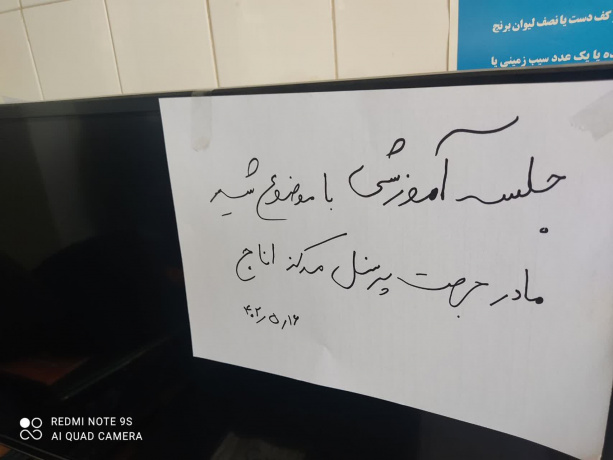 کف دست یا نصف لیوان برنج
ده یا یک عدد سیب زمینی یا
جلسه آموزشی با موضوع شیر
مادر جهت پرسنل مرکز اناج
۴۰۲٫۵٫۱۶
REDMI NOTE 9S
AI QUAD CAMERA